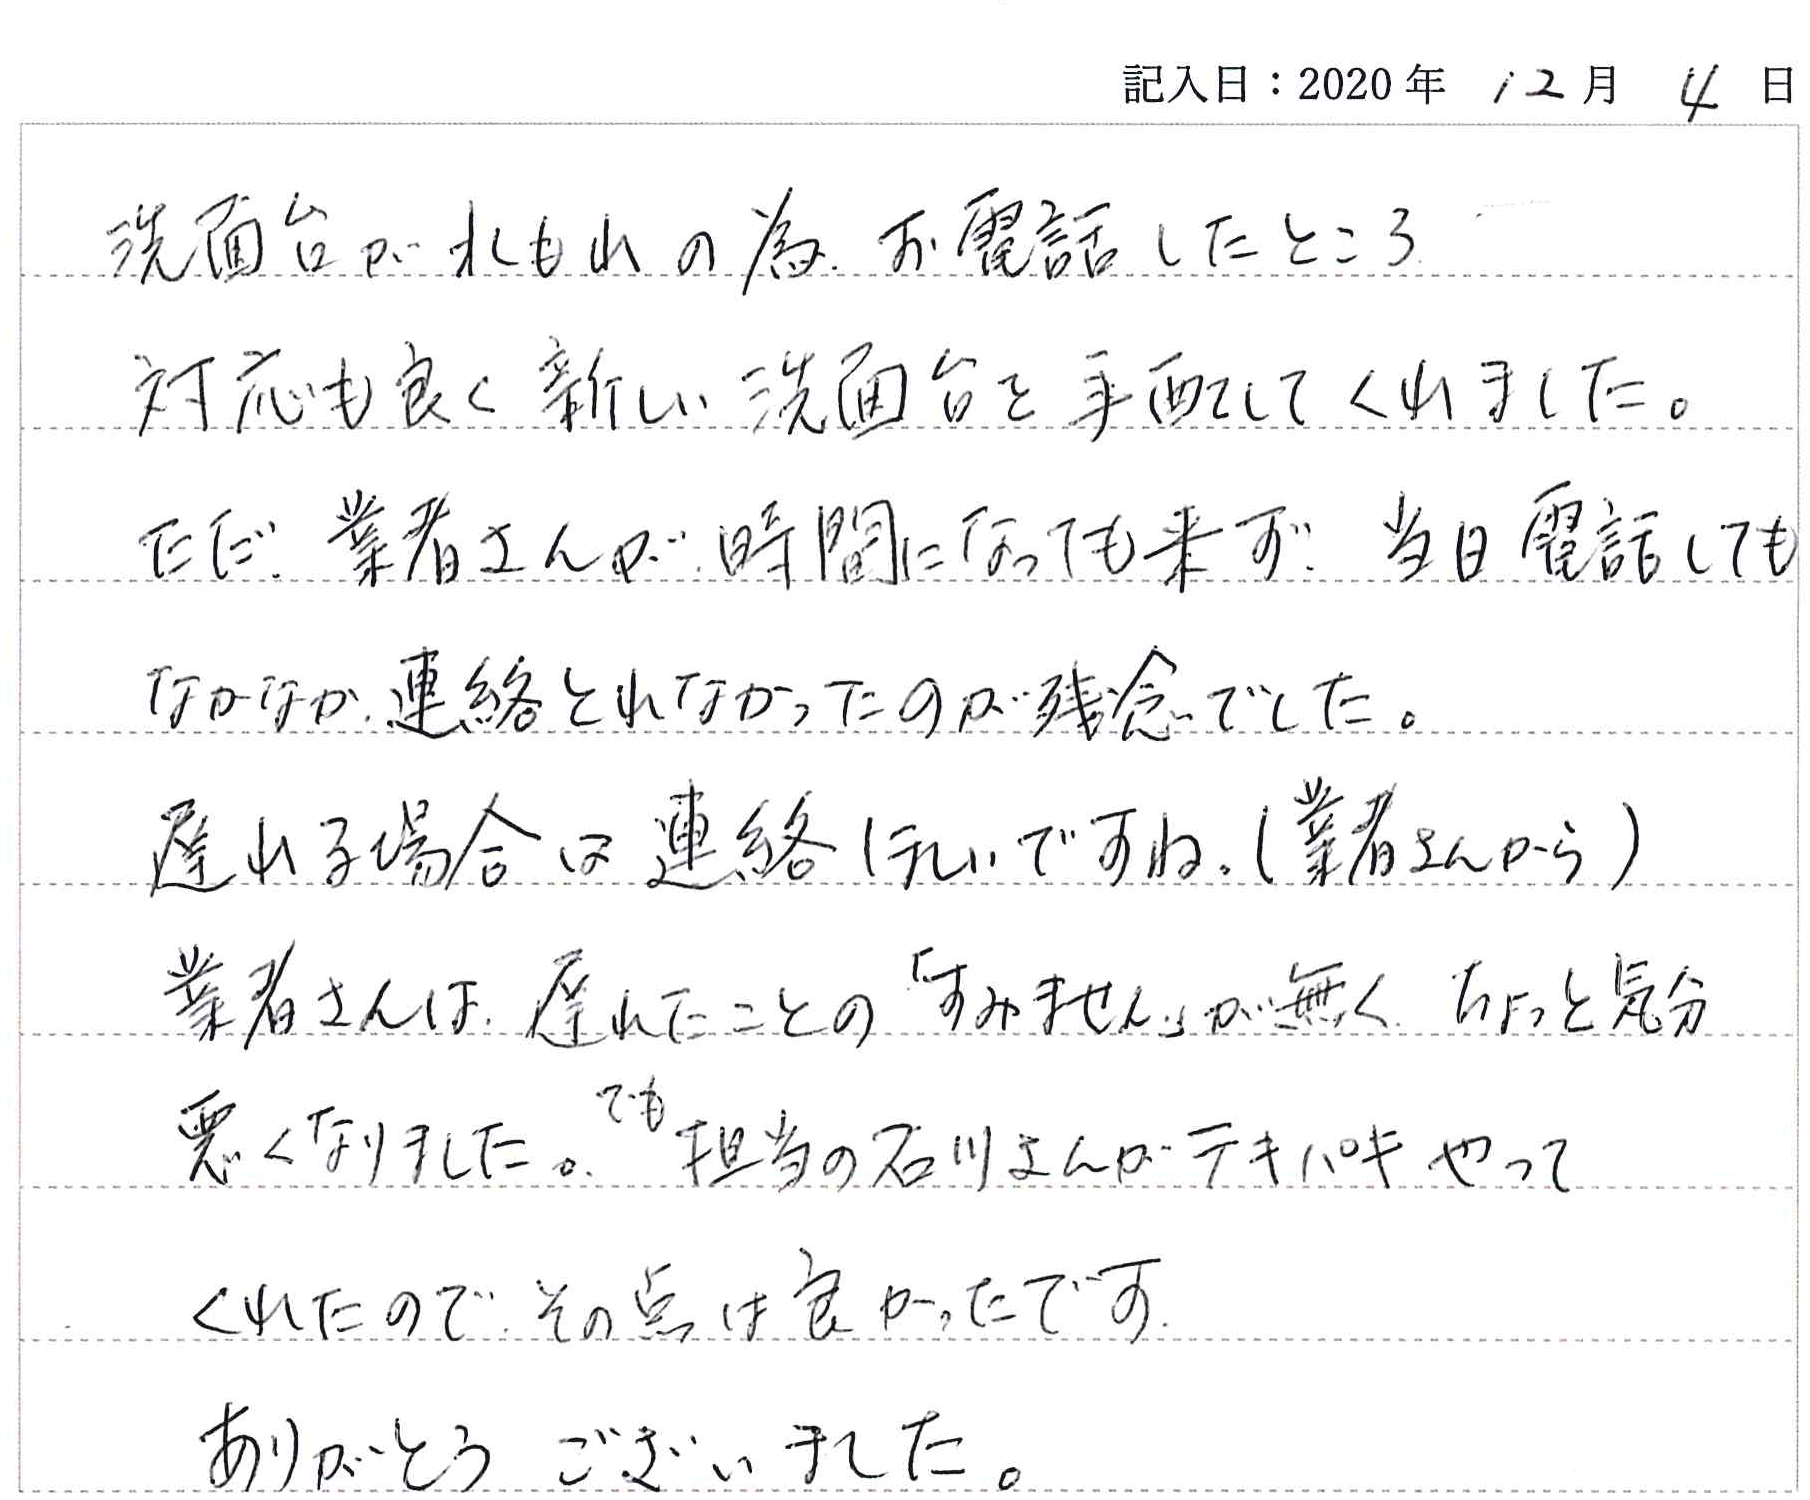 記入日：2020年 12月 4日
洗面台が水もれの為、お電話したところ
対応も良く新しい洗面台を手配してくれました。
ただ、業者さんが、時間になっても来ず、当日電話しても
なかなか、連絡とれなかったのが残念でした。
遅れる場合は連絡ほしいですね。(業者さんから)
業者さんは、遅れたことの「すみません」が無く、ちょっと気分
悪くなりました。でも担当の石川さんがテキパキやって
くれたので、その点は良かったです。
ありがとうございました。